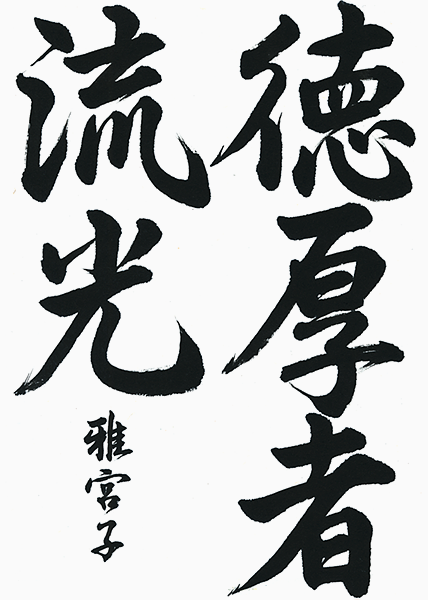 徳厚者
流光
雅宮子